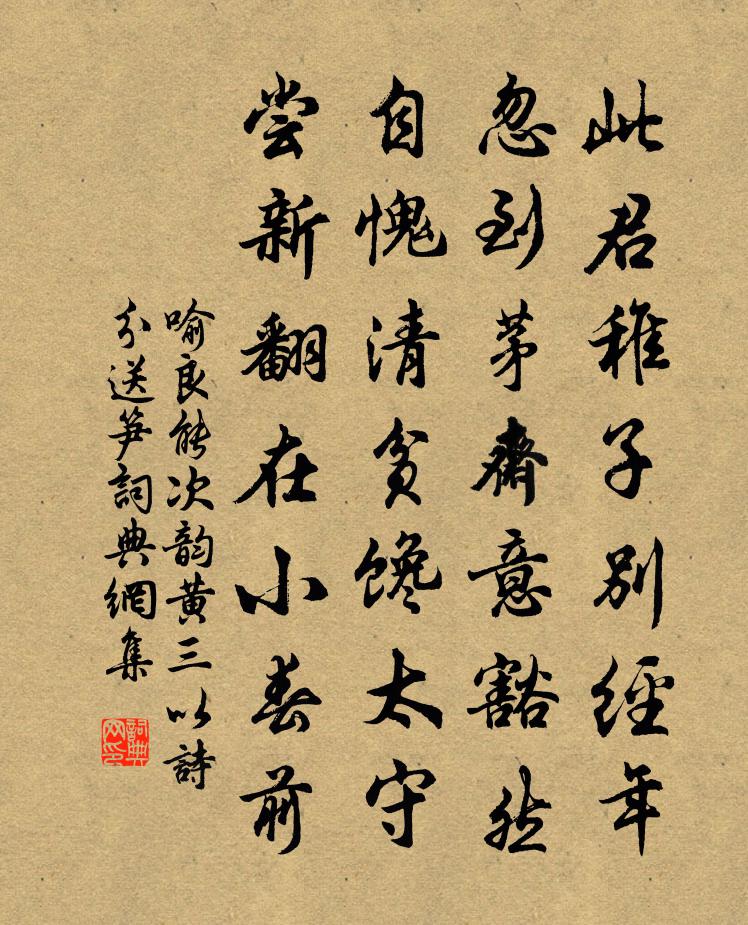 此君稚子别經年
忽到茅齋意豁然
自愧清貧馋太守
尝新翻在小春前
喻良能次韵黄三以詩
分送笋詞典網集
詞典
网印